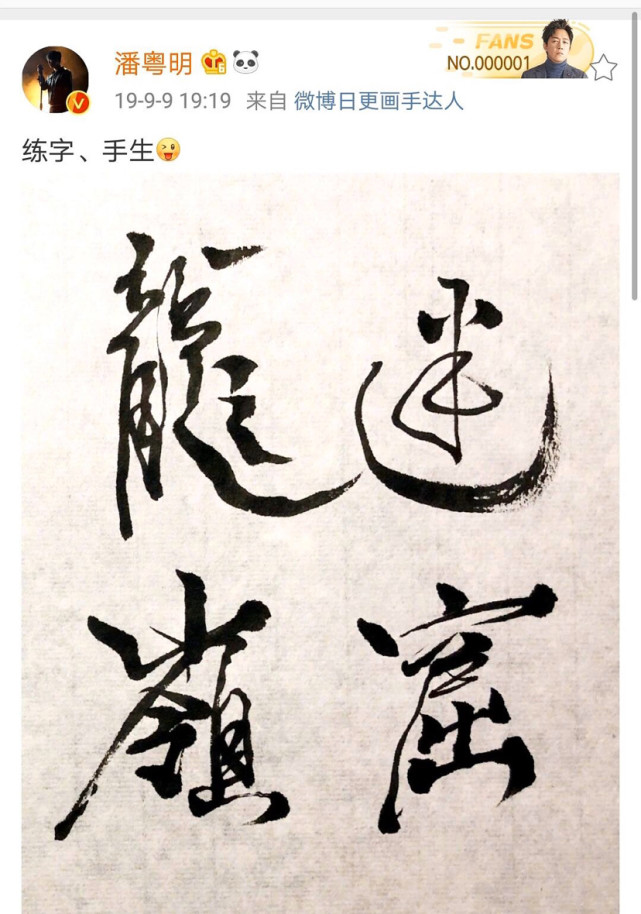 潘粤明
FANS
NO.000001
19-9-9 19:19 来自 微博日更画手达人
练字、手生😜
龍嶺
迷窟